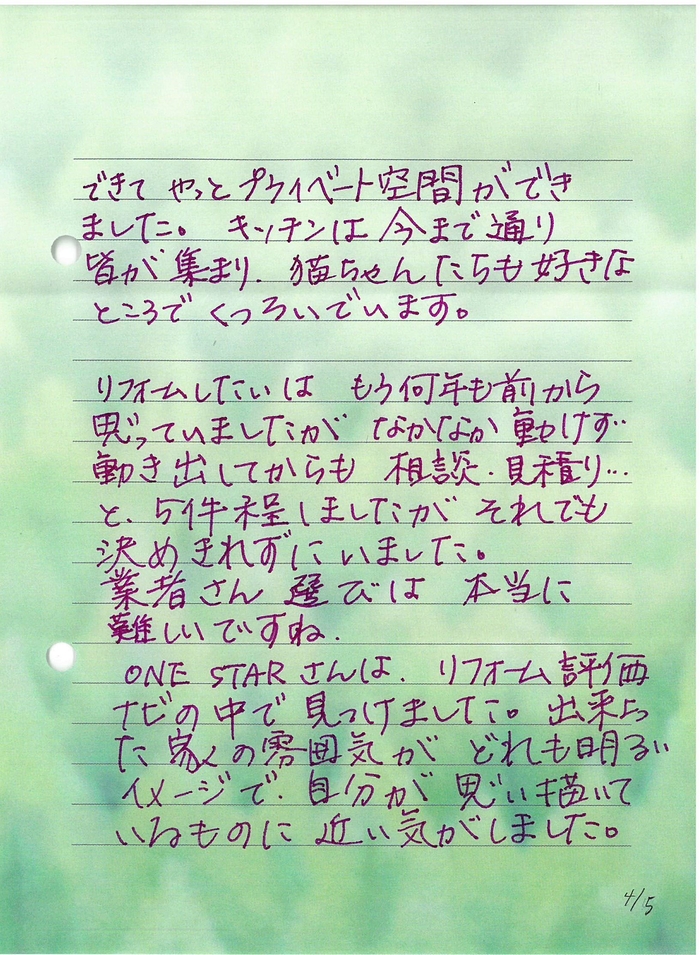 できて やっとプライベート空間ができ
ました。 キッチンは今まで通り
皆が集まり、猫ちゃんたちも好きな
ところでくつろいでいます。
リフォームしたいは もう何年も前から
思っていましたが なかなか動けず…
動き出してからも 相談・見積り…
と、5件程しましたが それでも
決めきれずにいました。
業者さん 選びは 本当に
難しいですね.
ONE STARさんは、リフォーム評価
ナビの中で見つけました。出来上っ
た家々の雰囲気が どれも明るい
イメージで、自分が 思い描いて
いるものに 近い気がしました。
4/5